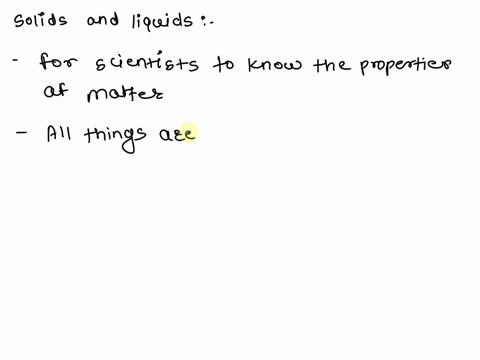 Solids and liquids :-
- for scientists to know the properties
of matter
- All things are